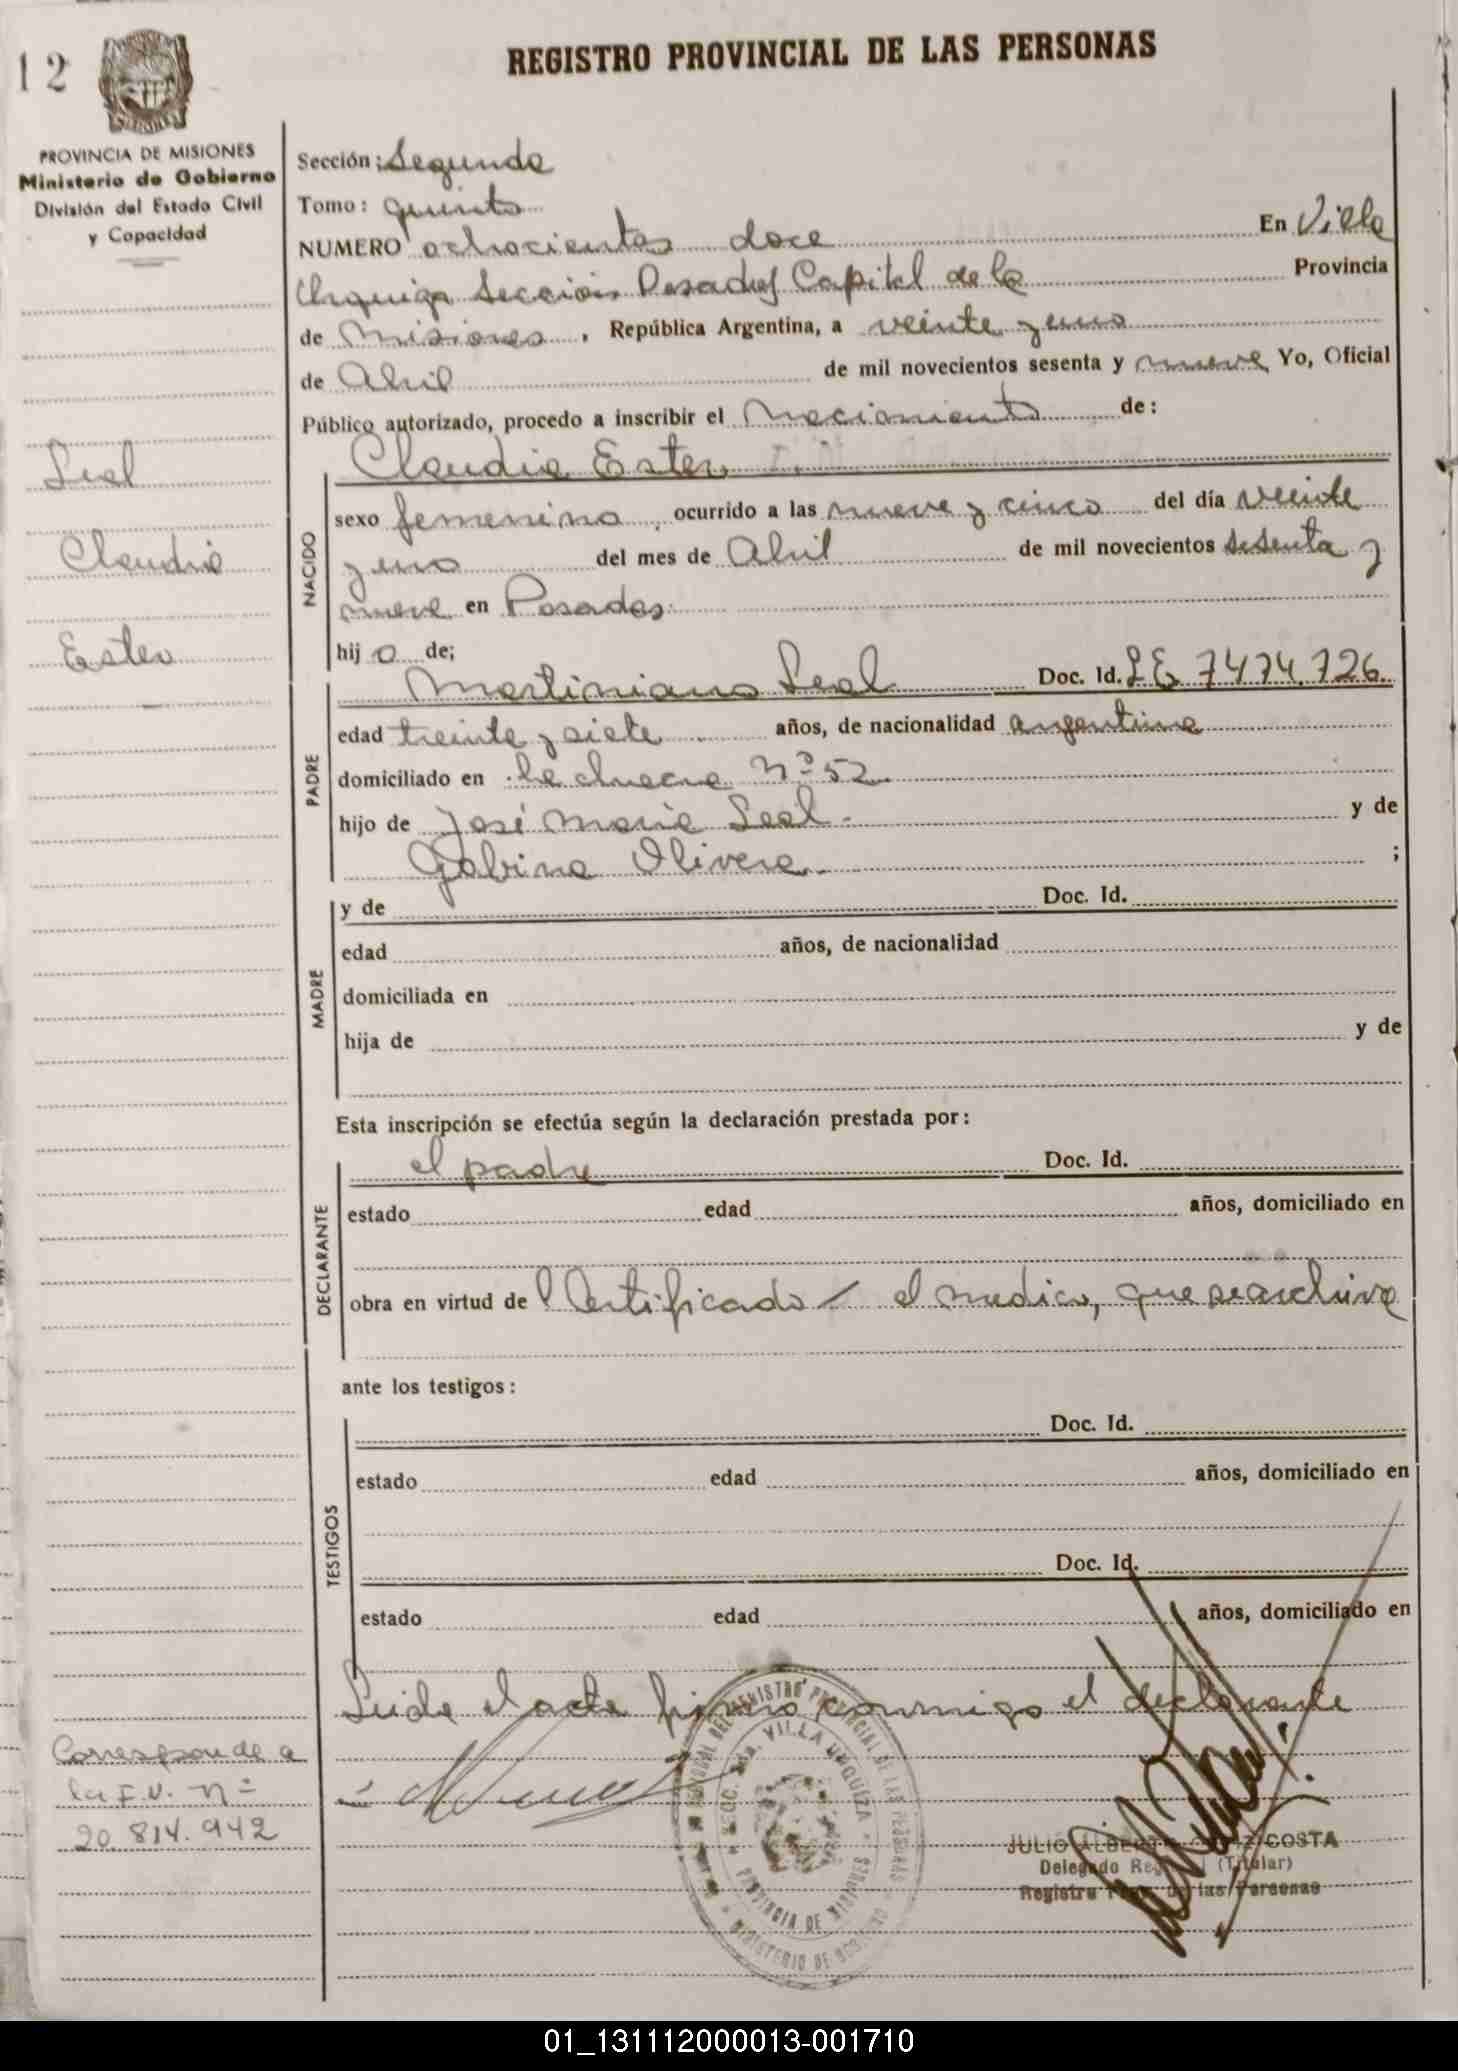 12
REGISTRO PROVINCIAL DE LAS PERSONAS
PROVINCIA DE MISIONES
Ministerio de Gobierno
División del Estado Civil
y Capacidad
Leal
Claudia
Ester
Corresponde a
la I.N. Nº
20.814.942
Sección: Segunda
Tomo: quinto
NUMERO ochocientos doce En Villa
Urquiza Sección Posadas Capital de la Provincia
de Misiones, República Argentina, a veinte y uno
de Abril de mil novecientos sesenta y nueve Yo, Oficial
Público autorizado, procedo a inscribir el nacimiento de:
NACIDO
Claudia Ester
sexo femenino, ocurrido a las nueve y cinco del día veinte
y uno del mes de Abril de mil novecientos sesenta y
nueve en Posadas
hij a de;
PADRE
Martiniano Leal Doc. Id. LE 7474.726
edad treinta y siete años, de nacionalidad argentina
domiciliado en Nº 52
hijo de José María Leal y de
Gabina Olivera ;
MADRE
y de Doc. Id.
edad años, de nacionalidad
domiciliada en
hija de y de
Esta inscripción se efectúa según la declaración prestada por:
DECLARANTE
el padre Doc. Id.
estado edad años, domiciliado en
obra en virtud del Certificado / el medico, que se archiva
ante los testigos:
TESTIGOS
Doc. Id.
estado edad años, domiciliado en
Doc. Id.
estado edad años, domiciliado en
Leida el acta firma conmigo el declarante
PROVINCIAL DE LAS PERSONAS
VILLA URQUIZA
PROVINCIA DE MISIONES
MINISTERIO DE GOBIERNO
JULIO COSTA
Delegado (Titular)
Registro de las Personas
01_131112000013-001710